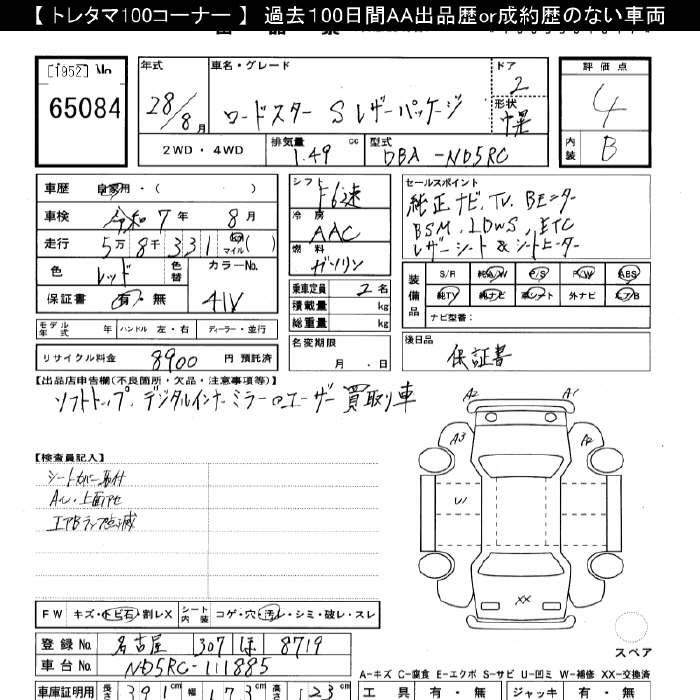 【 トレタマ100コーナー 】 過去100日間AA出品歴or成約歴のない車両
[1952] No
65084
年式
28/8月
車名・グレード
ロードスター S レザーパッケージ
ドア
2
形状
幌
評価点
4
内装
B
2WD・4WD
排気量
1.49 cc
型式
DBA-ND5RC
車歴 自家用・( )
車検 令和 7年 8月
走行 5万8千331 km マイル( )
色 レッド
色替
カラーNo.
41V
保証書 有・無
モデル年式 年 ハンドル 左・右 ディーラー・並行
リサイクル料金 8900 円 預託済
シフト F6速
冷房 AAC
燃料 ガソリン
乗車定員 2名
積載量 kg
総重量 kg
名変期限
月・日
セールスポイント
純正ナビ、TV、Bモニター
BSM、LDWS、ETC
レザーシート&シートヒーター
装備品
S/R 純A/W P/S P/W ABS
純TV 純ナビ 革シート 外ナビ エアB
ナビ型番:
後日品
保証書
【出品店申告欄(不良箇所・欠品・注意事項等)】
ソフトトップ、デジタルインナーミラー ロエーザー 買取り車
【検査員記入】
シートカバー取付
AW・上面
エアBランプ点滅
A2 A1
A3 A2
W
XX
スペア
FW キズ・トビ石・割レX
シート内装 コゲ・穴・汚レ・シミ・破レ・スレ
登録No. 名古屋 307 ほ 8719
車台No. ND5RC-111885
A-キズ C-腐食 E-エクボ S-サビ U-凹ミ W-補修 XX-交換済
車庫証明用 長さ 391cm 幅 173cm 高さ 123cm
工具 有・無 ジャッキ 有・無